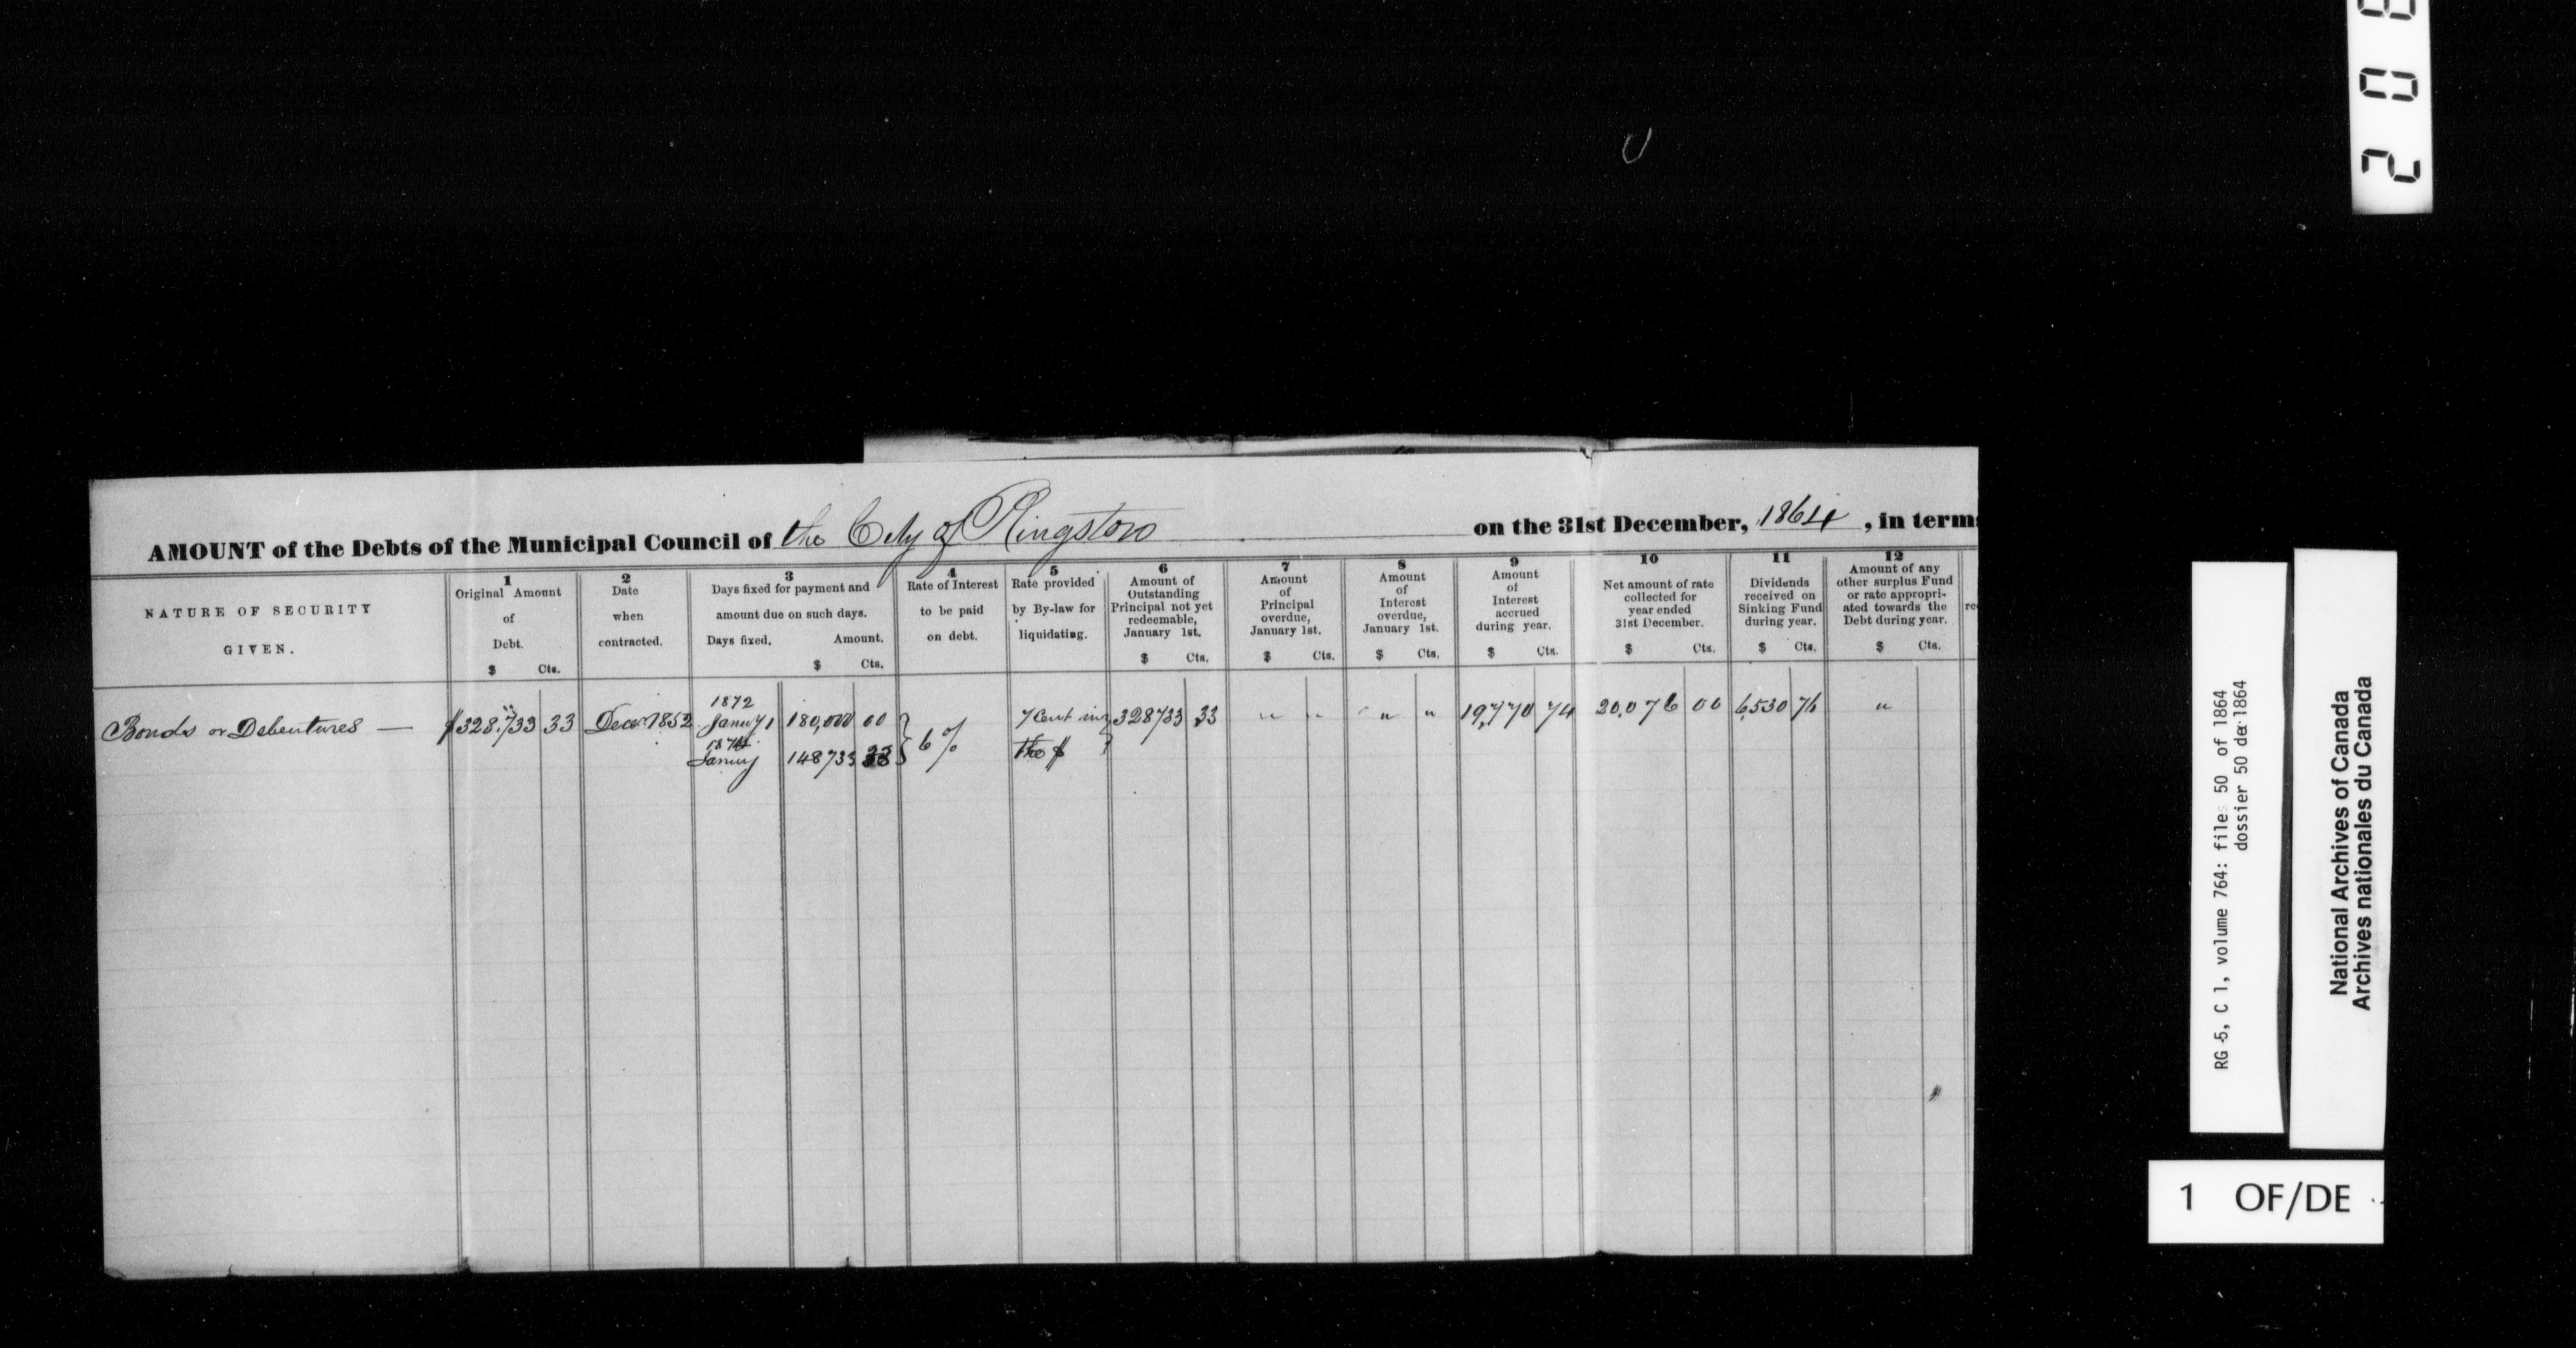 AMOUNT of the Debts of the Municipal Council of the City of Kingston on the 31st December, 1864, in term
NATURE OF SECURITY
GIVEN.
1
Original Amount
of
Debt.
$ Cts.
2
Date
when
contracted.
3
Days fixed for payment and
amount due on such days.
Days fixed. Amount.
$ Cts.
4
Rate of Interest
to be paid
on debt.
5
Rate provided
by By-law for
liquidating.
6
Amount of
Outstanding
Principal not yet
redeemable,
January 1st.
$ Cts.
7
Amount
of
Principal
overdue,
January 1st.
$ Cts.
8
Amount
of
Interest
overdue,
January 1st.
$ Cts.
9
Amount
of
Interest
accrued
during year.
$ Cts.
10
Net amount of rate
collected for
year ended
31st December.
$ Cts.
11
Dividends
received on
Sinking Fund
during year.
$ Cts.
12
Amount of any
other surplus Fund
or rate appropri-
ated towards the
Debt during year.
$ Cts.
re
1872
Bonds or Debentures — $328.733 33 Decr 1852 Januy 1 180,000 00 6% 7 Cent in 328733 33 " " " " 19,770 74 20,076 00 6,530 76 "
Januy 148733 33 the $
208
RG 5, C 1, volume 764: file 50 of 1864
dossier 50 de 1864
National Archives of Canada
Archives nationales du Canada
1 OF/DE